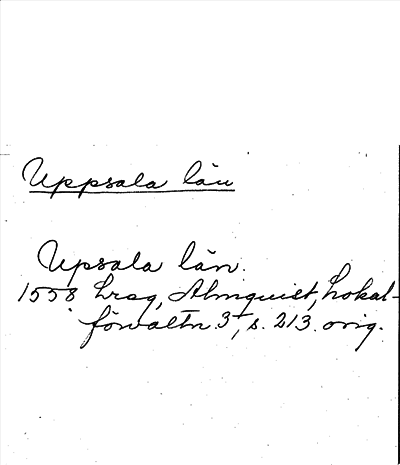 Uppsala län
Upsala län.
1558 hrag, Almquist, Lokal-
förvaltn. 3, s. 213. orig.